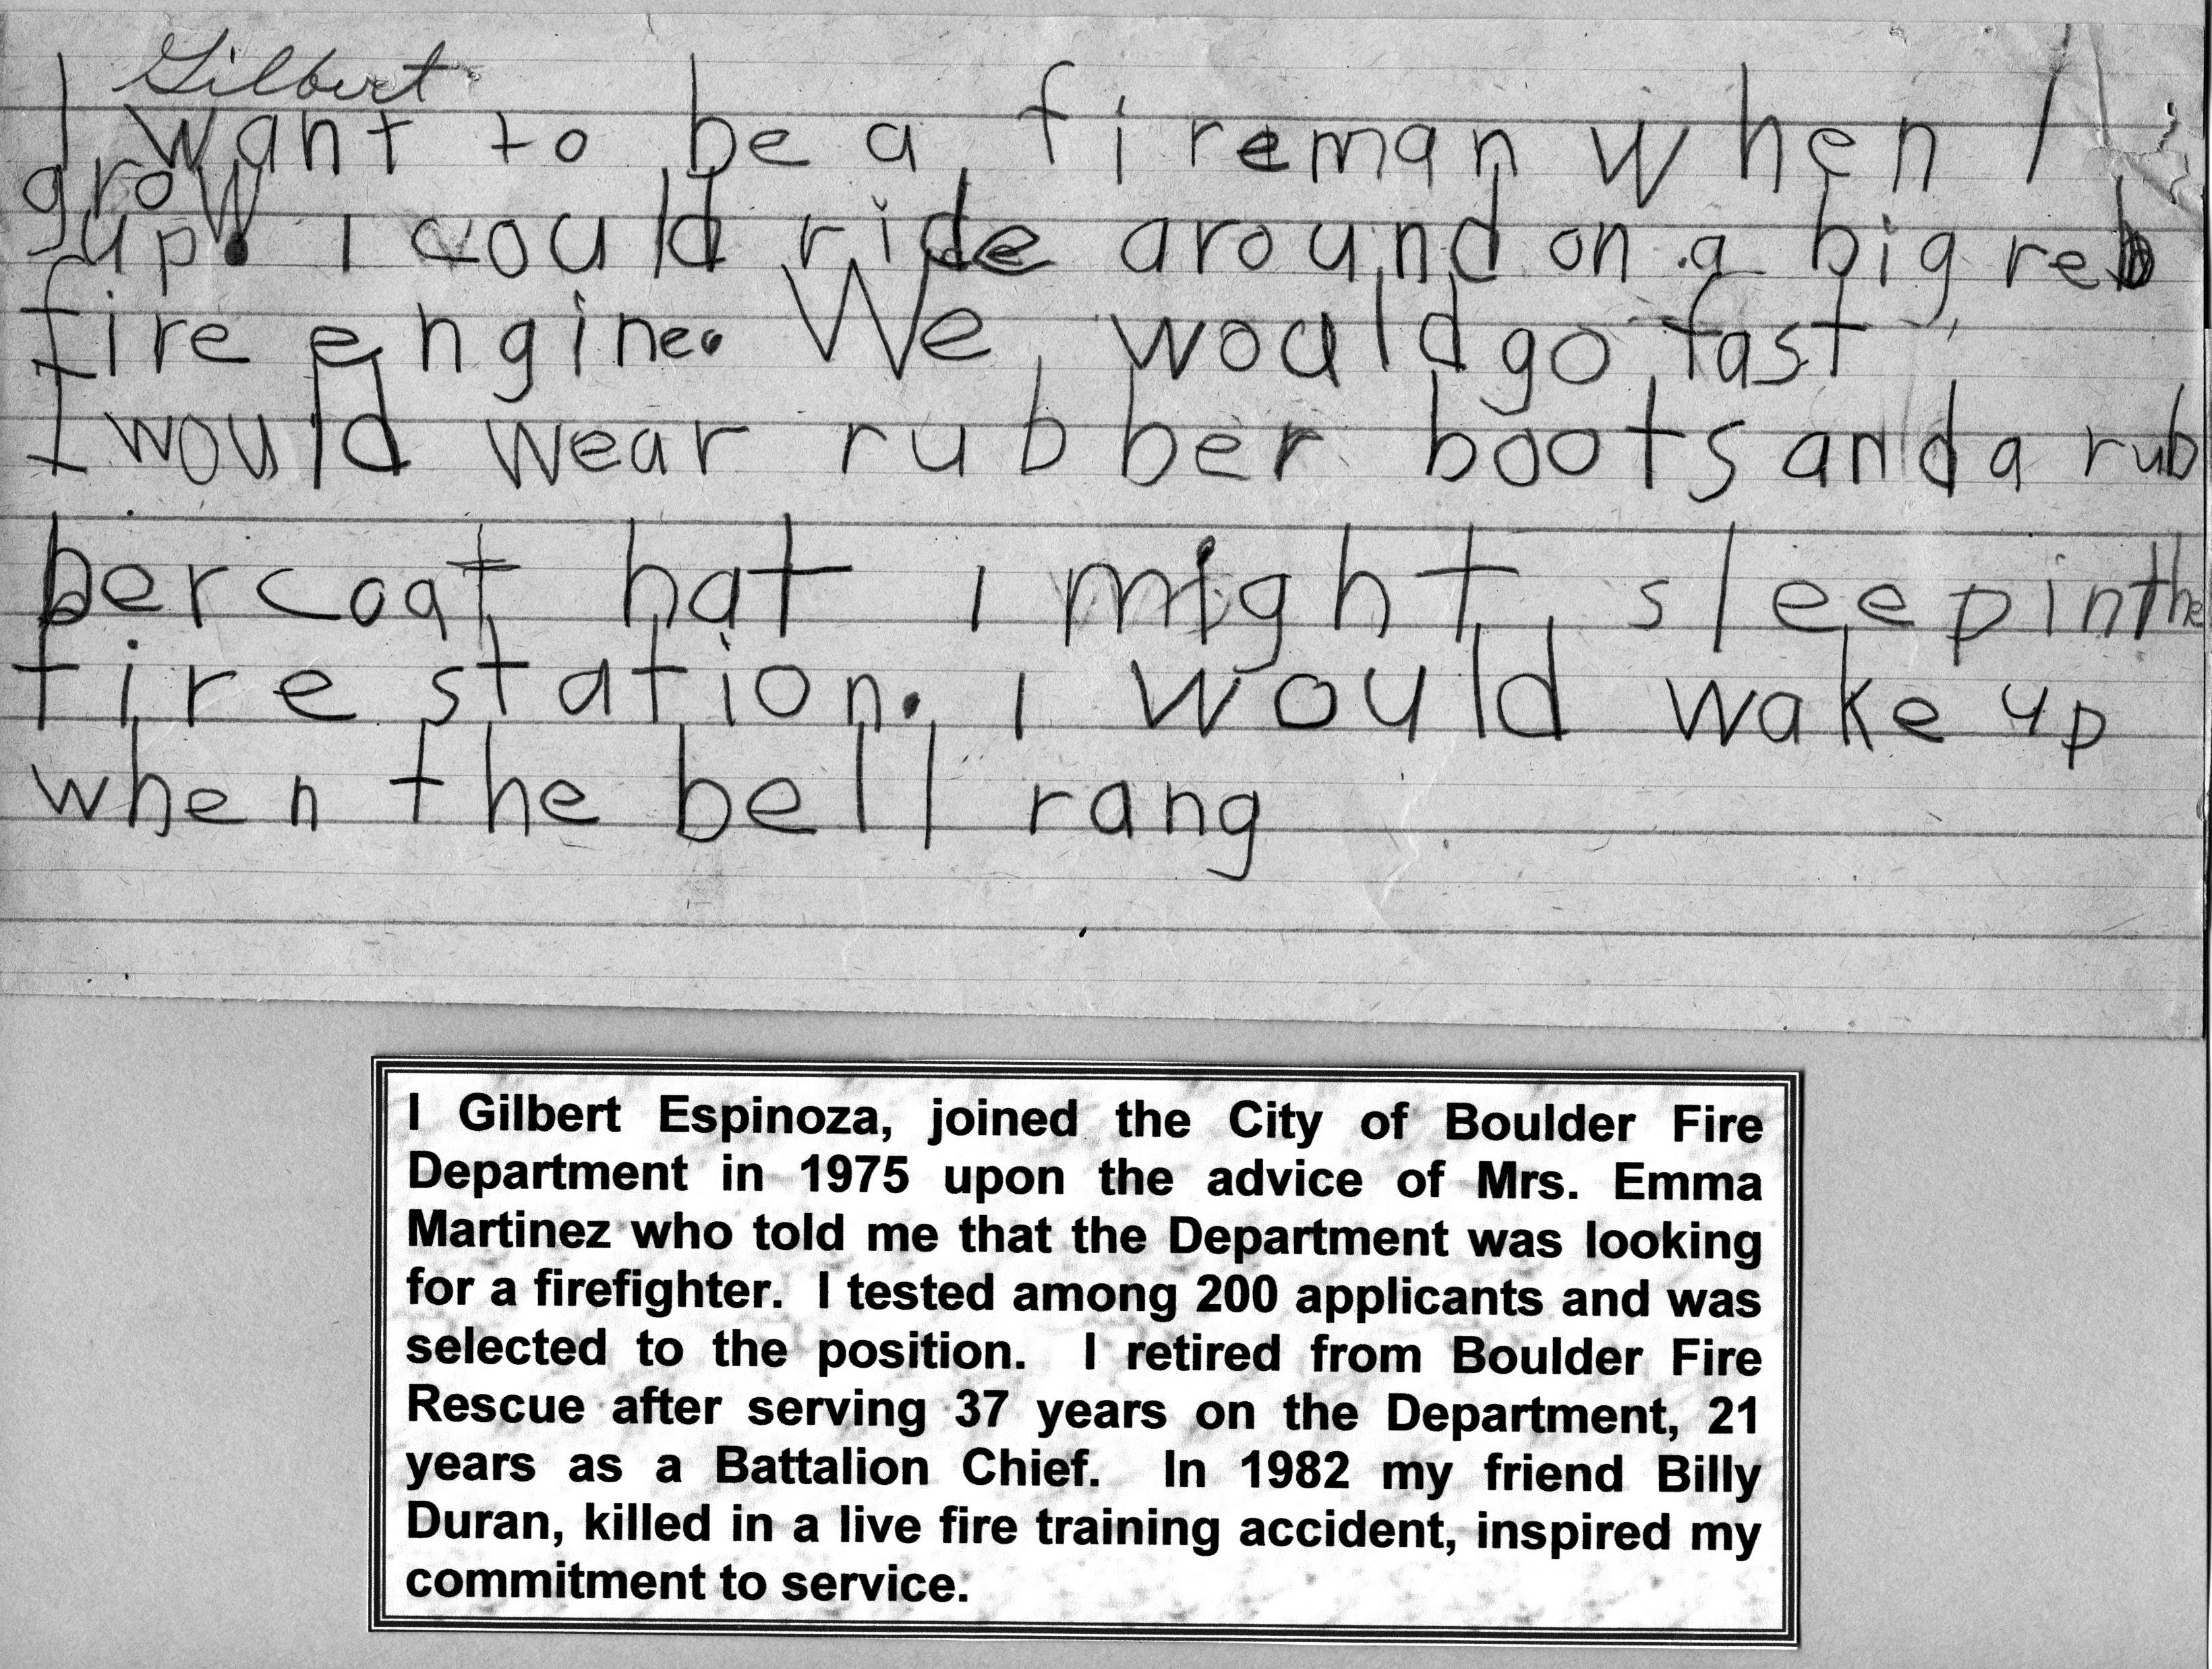 Gilbert
I want to be a fireman when I
grow
up. i could ride around on a big reb
fire engine. We would go fast
I would wear rubber boots and a rub
ber coat hat i might sleep in the
fire station. i would wake up
when the bell rang
I Gilbert Espinoza, joined the City of Boulder Fire
Department in 1975 upon the advice of Mrs. Emma
Martinez who told me that the Department was looking
for a firefighter. I tested among 200 applicants and was
selected to the position. I retired from Boulder Fire
Rescue after serving 37 years on the Department, 21
years as a Battalion Chief. In 1982 my friend Billy
Duran, killed in a live fire training accident, inspired my
commitment to service.